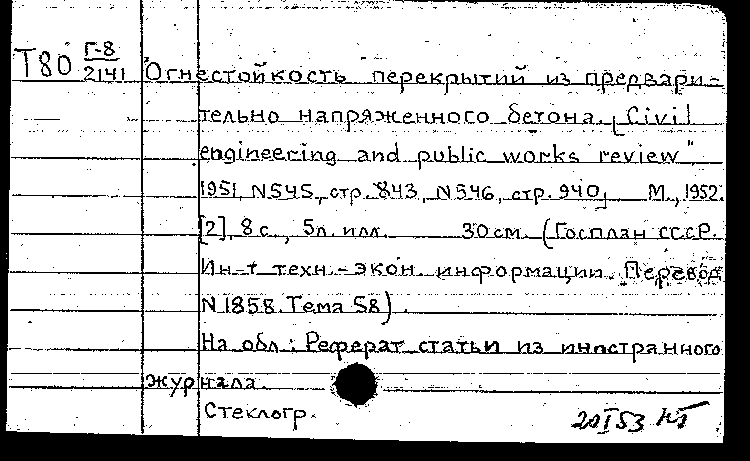 Т80 Г-8/2141 "Огнестойкость перекрытий из предвари-
тельно напряженного бетона. [Civil
engineering and public works review",
1951, N545, стр. 843, N546, стр. 940] М., 1952.
[2], 8 с., 5л. илл. 30 см. (Госплан СССР.
Ин-т техн.-экон. информации. Перевод
N 1858. Тема 58).
На обл.: Реферат статьи из иностранного
журнала.
Стеклогр.
20 I 53